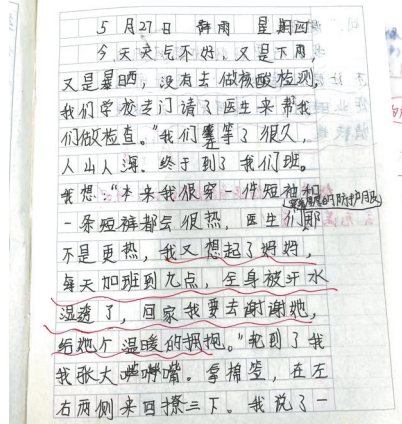 5月27日 阵雨 星期四
今天天气不好，又是下雨，
又是暴晒，没有去做核酸检测，
我们学校专门请了医生来帮我
们做检查。"我们等了很久，
人山人海，终于到了我们班。
我想："本来我很穿一件短袖和
一条短裤都会很热，医生们那
穿着厚厚的防护服
不是更热，我又想起了妈妈，
每天加班到九点，全身被汗水
湿透了，回家我要去谢谢她，
给她个温暖的拥抱。"轮到了我
我张大嘴。拿棉签，在左
右两侧来回擦三下。我说了一